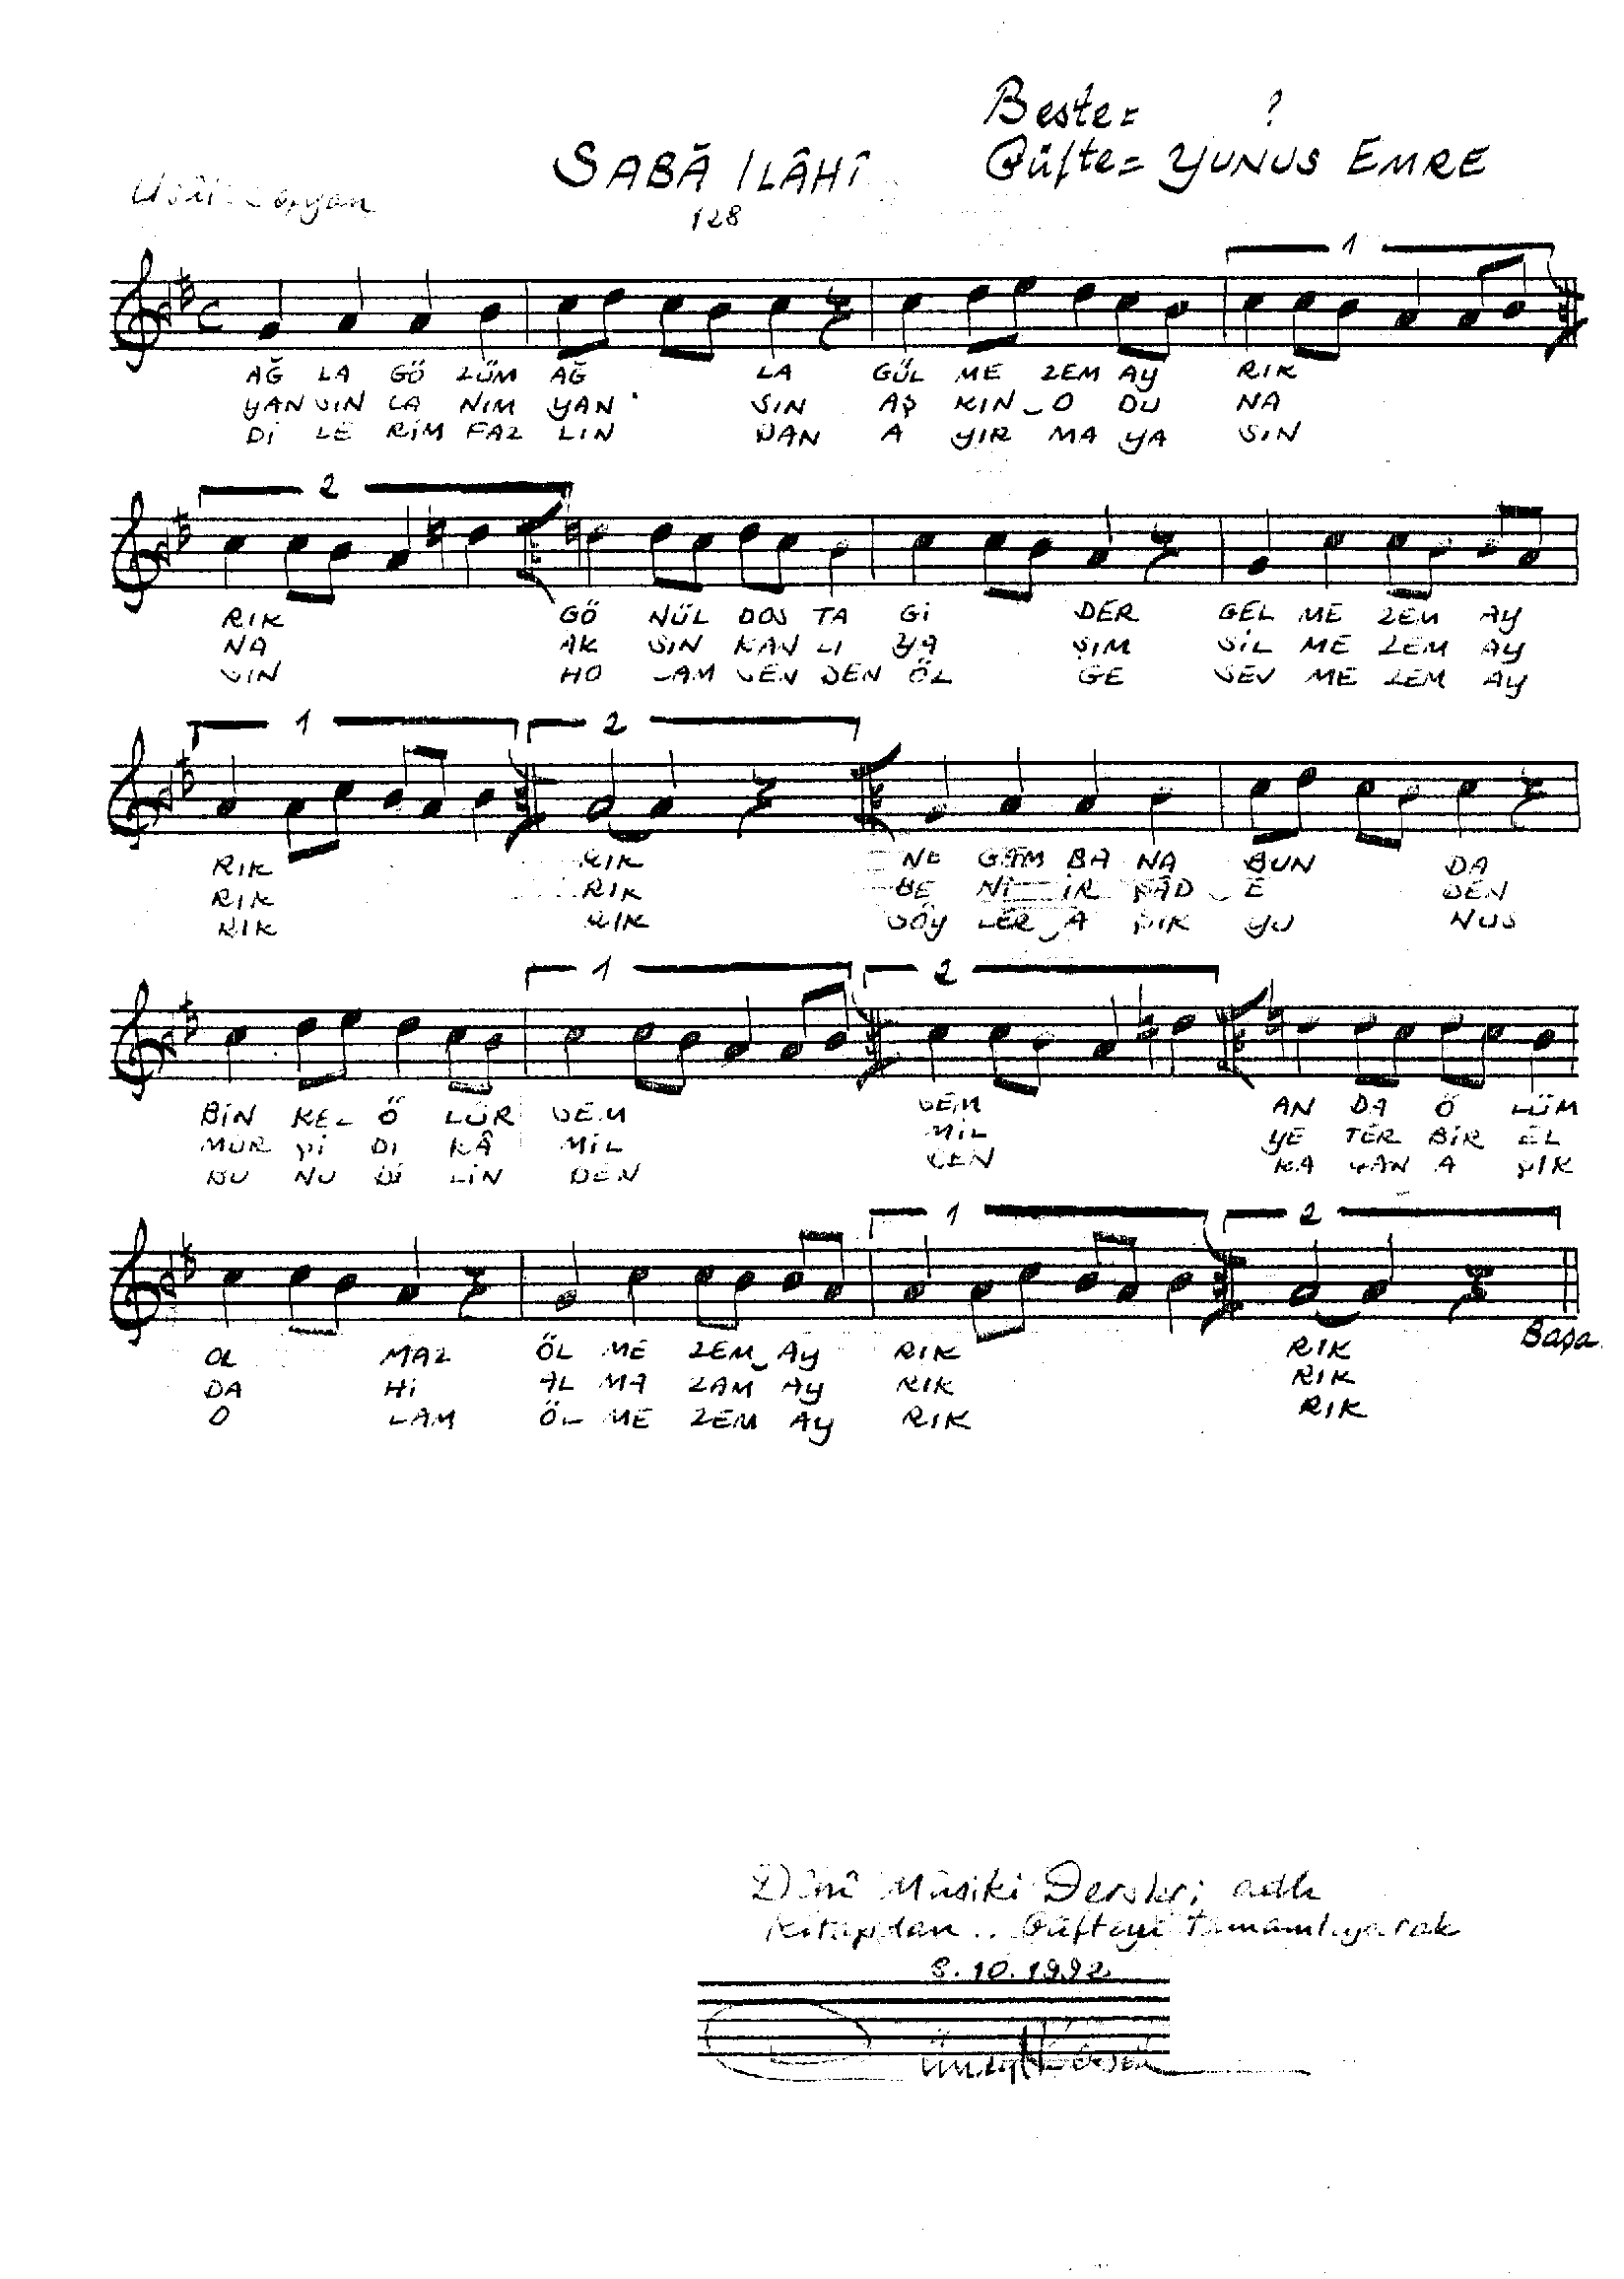 Beste= ?
Güfte= YUNUS EMRE
SABÂ İLÂHÎ
128
Usûl: Sofyan
1
AĞ LA GÖ ZÜM AĞ LA GÜL ME ZEM AY RIK
YAN SIN CA NIM YAN SIN AŞ KIN O DU NA
Dİ LE RİM FAZ LIN DAN A YIR MA YA SIN
2
RIK GÖ NÜL DOS TA Gİ DER GEL ME ZEM AY
NA AK SIN KAN LI YA ŞIM SİL ME ZEM AY
SIN HO LAM SEN DEN ÖZ GE SEV ME ZEM AY
1 2
RIK RIK NE GAM BA NA BUN DA
RIK RIK BE Nİ İR ŞÂD E DEN
RIK RIK SÖY LER A ŞIK YU NUS
1 2
BİN KEZ Ö LÜR SEM SEM AN DA Ö LÜM
MÜR Şİ Dİ KÂ MİL MİL YE TER BİR EL
BU NU Dİ LİN DEN DEN KA ÇAN A ŞIK
1 2
OL MAZ ÖL ME ZEM AY RIK RIK
DA Hİ AL MA ZAM AY RIK RIK
O LAM ÖL ME ZEM AY RIK RIK
Başa
Dînî Mûsiki Dersleri adlı
Kitapdan.. Güfteyi tamamlıyarak
8.10.1992